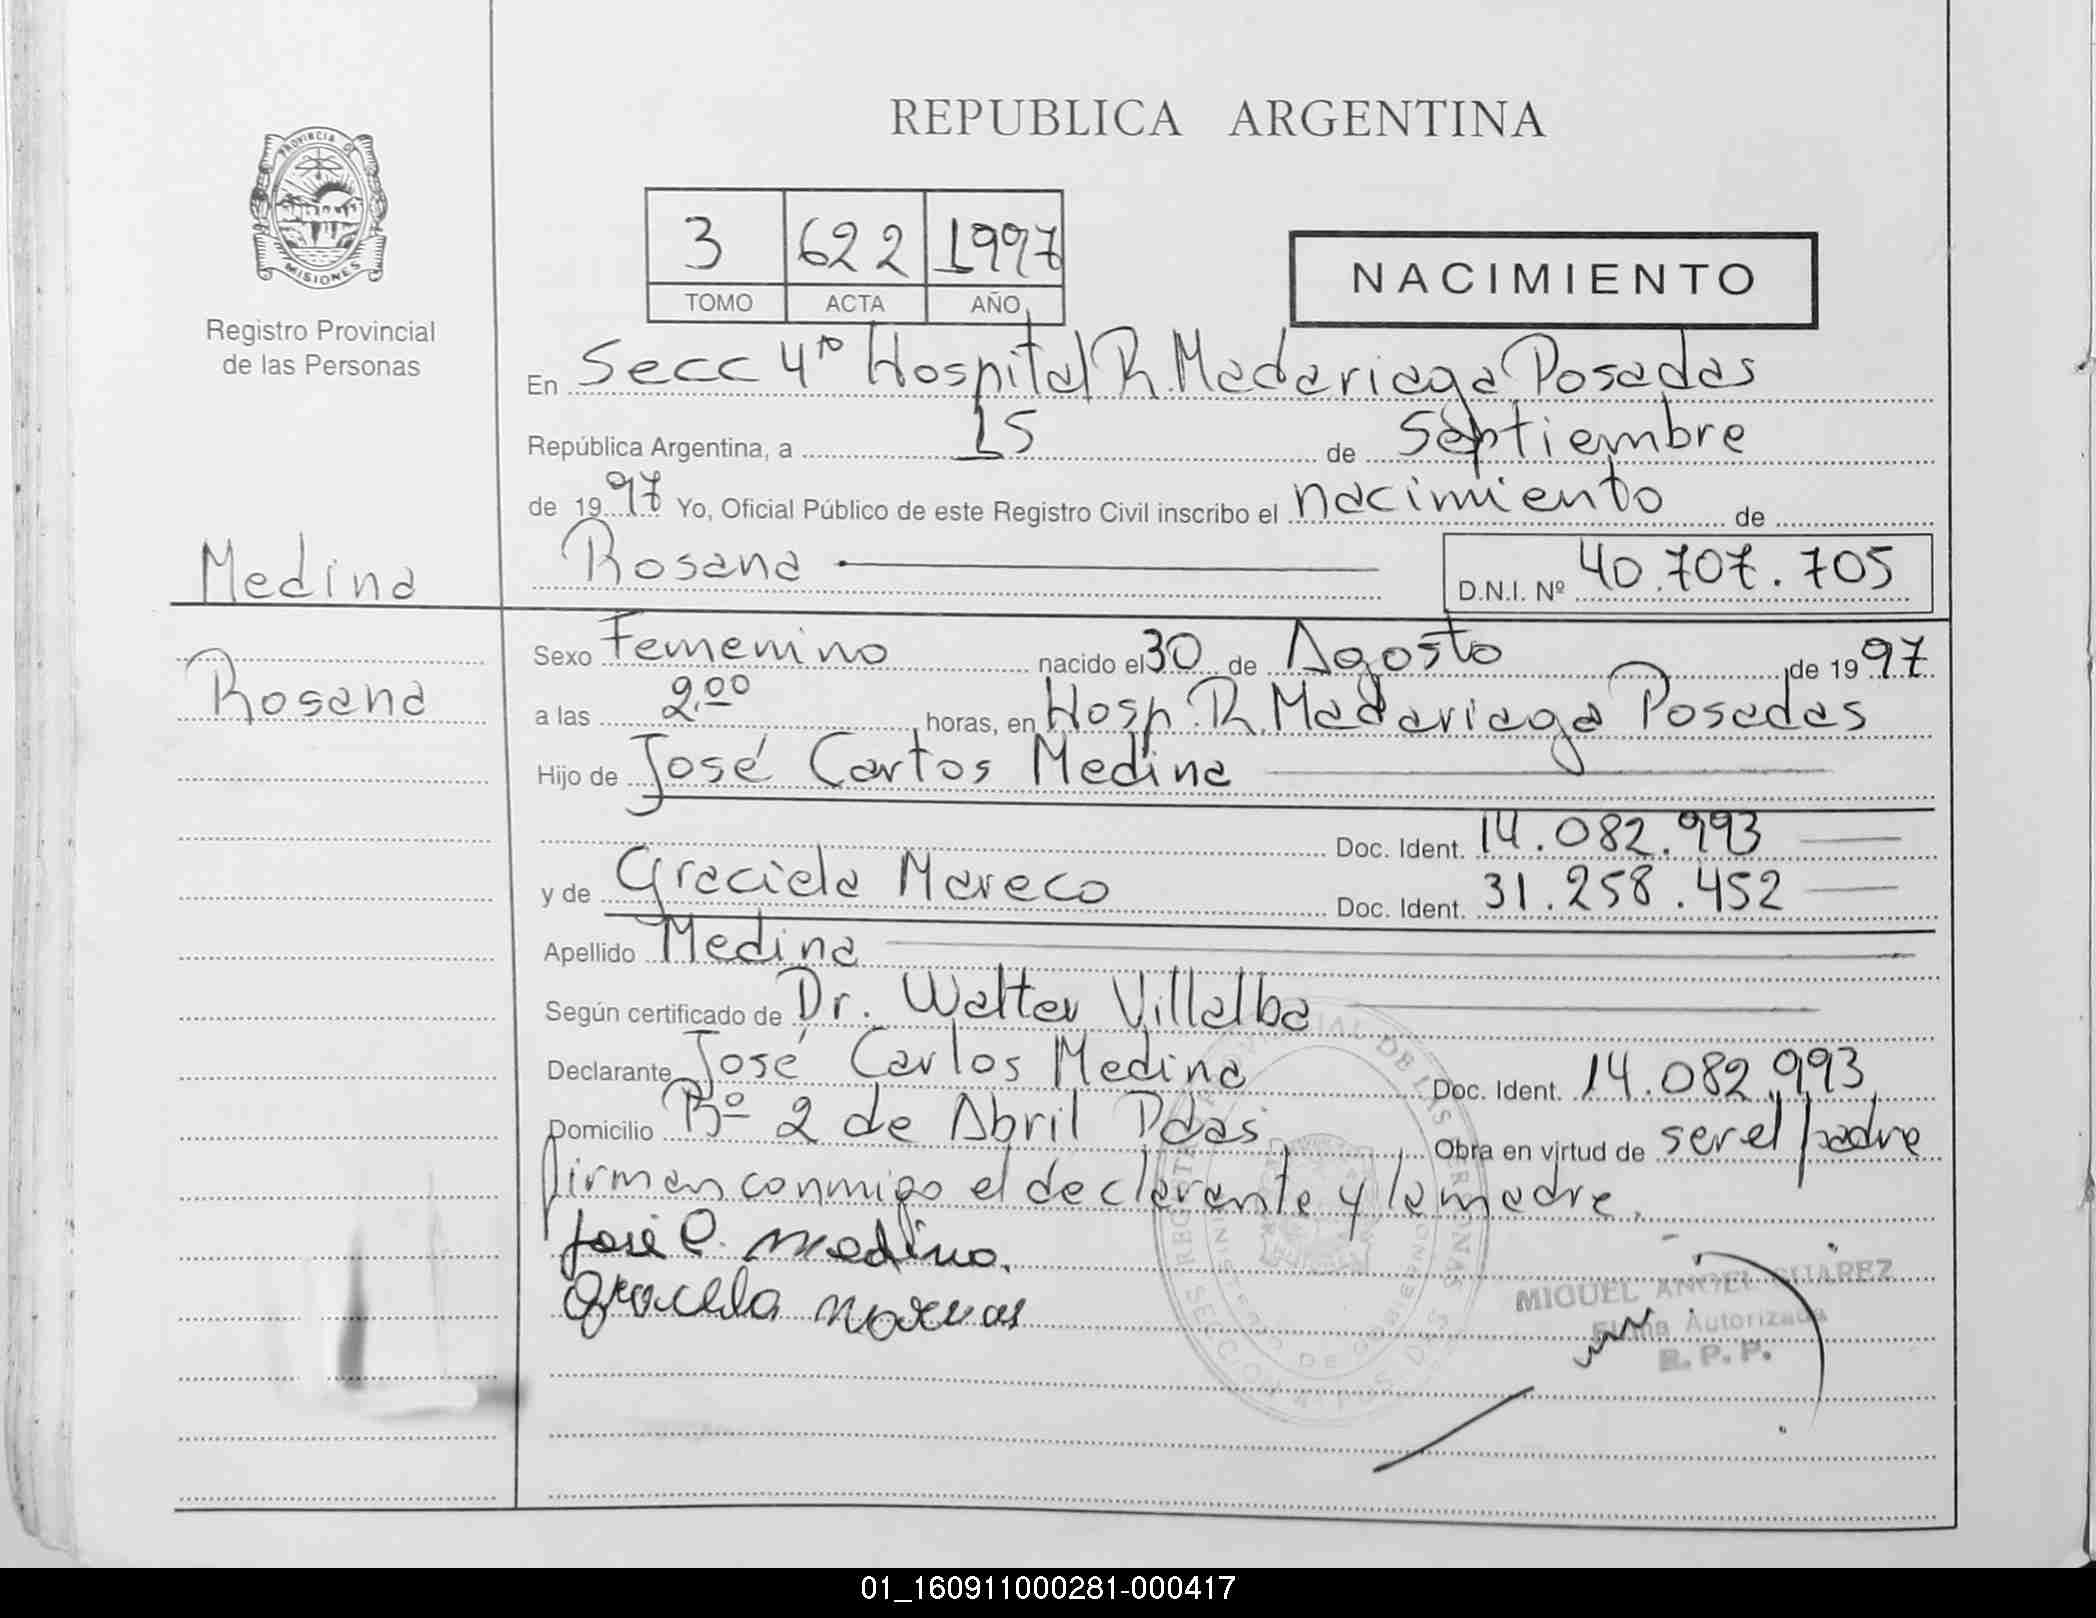 REPUBLICA ARGENTINA
PROVINCIA DE
MISIONES
Registro Provincial
de las Personas
3 622 1997
TOMO ACTA AÑO
NACIMIENTO
En Secc 4ta Hospital R. Madariaga Posadas
República Argentina, a 15 de Septiembre
de 1997 Yo, Oficial Público de este Registro Civil inscribo el nacimiento de
Medina
Rosana D.N.I. Nº 40.707.705
Rosana
Sexo Femenino nacido el 30 de Agosto de 1997
a las 2.00 horas, en Hosp. R. Madariaga Posadas
Hijo de José Carlos Medina
Doc. Ident. 14.082.993
y de Graciela Mareco Doc. Ident. 31.258.452
Apellido Medina
Según certificado de Dr. Walter Villalba
Declarante José Carlos Medina Doc. Ident. 14.082.993
Domicilio Bº 2 de Abril Pdas Obra en virtud de ser el padre
firman conmigo el declarante y la madre.
José C. Medina.
MIGUEL ANGEL SUAREZ
Firma Autorizada
R. P. P.
01_160911000281-000417